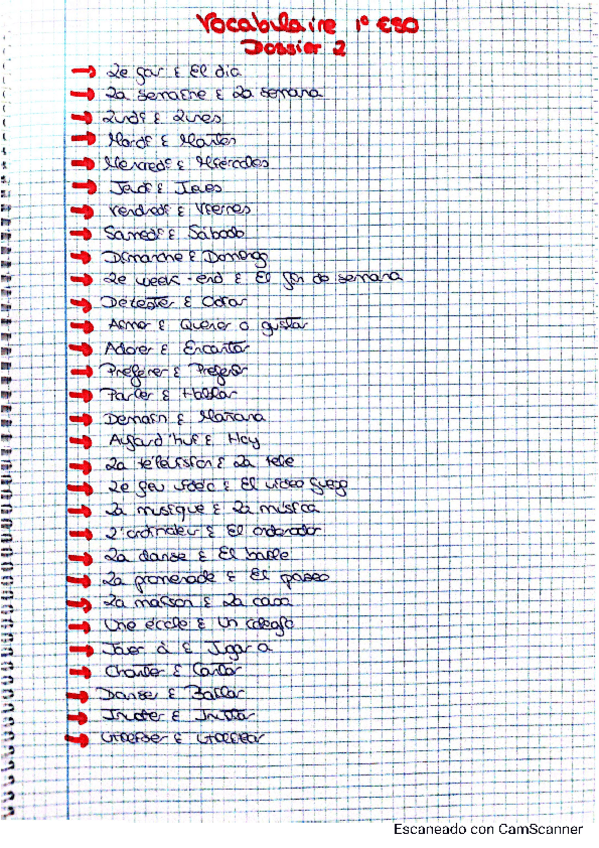 Vocabulaire 1º ESO
Dossier 2
→ Le jour & El día
→ La semaine & La semana
→ Lundi & Lunes
→ Mardi & Martes
→ Mercredi & Miércoles
→ Jeudi & Jueves
→ Vendredi & Viernes
→ Samedi & Sábado
→ Dimanche & Domingo
→ Le week-end & El fin de semana
→ Détester & Odiar
→ Aimer & Querer o gustar
→ Adorer & Encantar
→ Préférer & Preferir
→ Parler & Hablar
→ Demain & Mañana
→ Aujourd'hui & Hoy
→ La télévision & La tele
→ Le jeu vidéo & El video juego
→ La musique & La música
→ L'ordinateur & El ordenador
→ La danse & El baile
→ La promenade & El paseo
→ La maison & La casa
→ Une école & Un colegio
→ Jouer à & Jugar a
→ Chanter & Cantar
→ Danser & Bailar
→ Inviter & Invitar
Escaneado con CamScanner